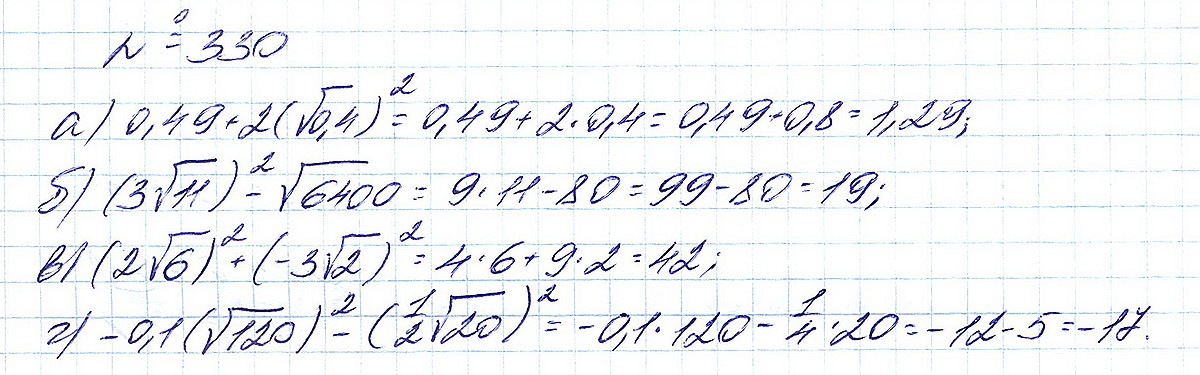 № 330
а) 0,49+2(√0,4)² = 0,49+2·0,4 = 0,49+0,8 = 1,29;
б) (3√11)² - √6400 = 9·11-80 = 99-80 = 19;
в) (2√6)² + (-3√2)² = 4·6+9·2 = 42;
г) -0,1(√120)² - (1/2√20)² = -0,1·120 - 1/4·20 = -12-5 = -17.